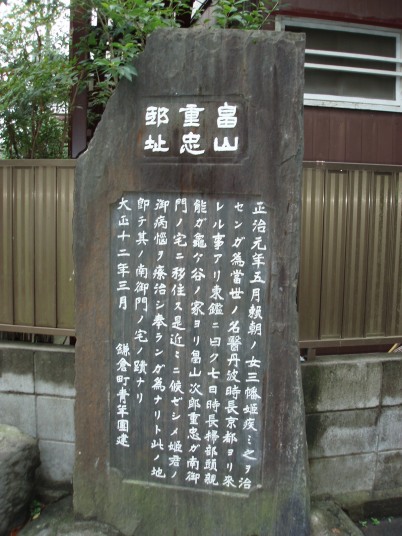 畠山
重忠
邸址
正治元年五月頼朝ノ女三幡姫疾ミ之ヲ治
センガ為當世ノ名醫丹波時長京都ヨリ來
レル事アリ東鑑ニ曰ク七日時長掃部頭親
能ガ龜ヶ谷ノ家ヨリ畠山次郎重忠ガ南御
門ノ宅ニ移住ス是近ミニ候ゼシメ姫君ノ
御病惱ヲ療治シ奉ランガ為ナリト此ノ地
即チ其ノ南御門ノ宅ノ蹟ナリ
大正十二年三月 鎌倉町青年團建